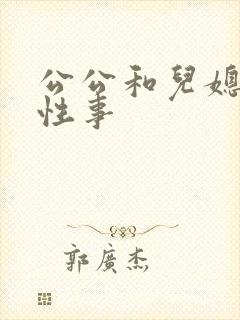 公公和兒媳
性事
郭廣杰